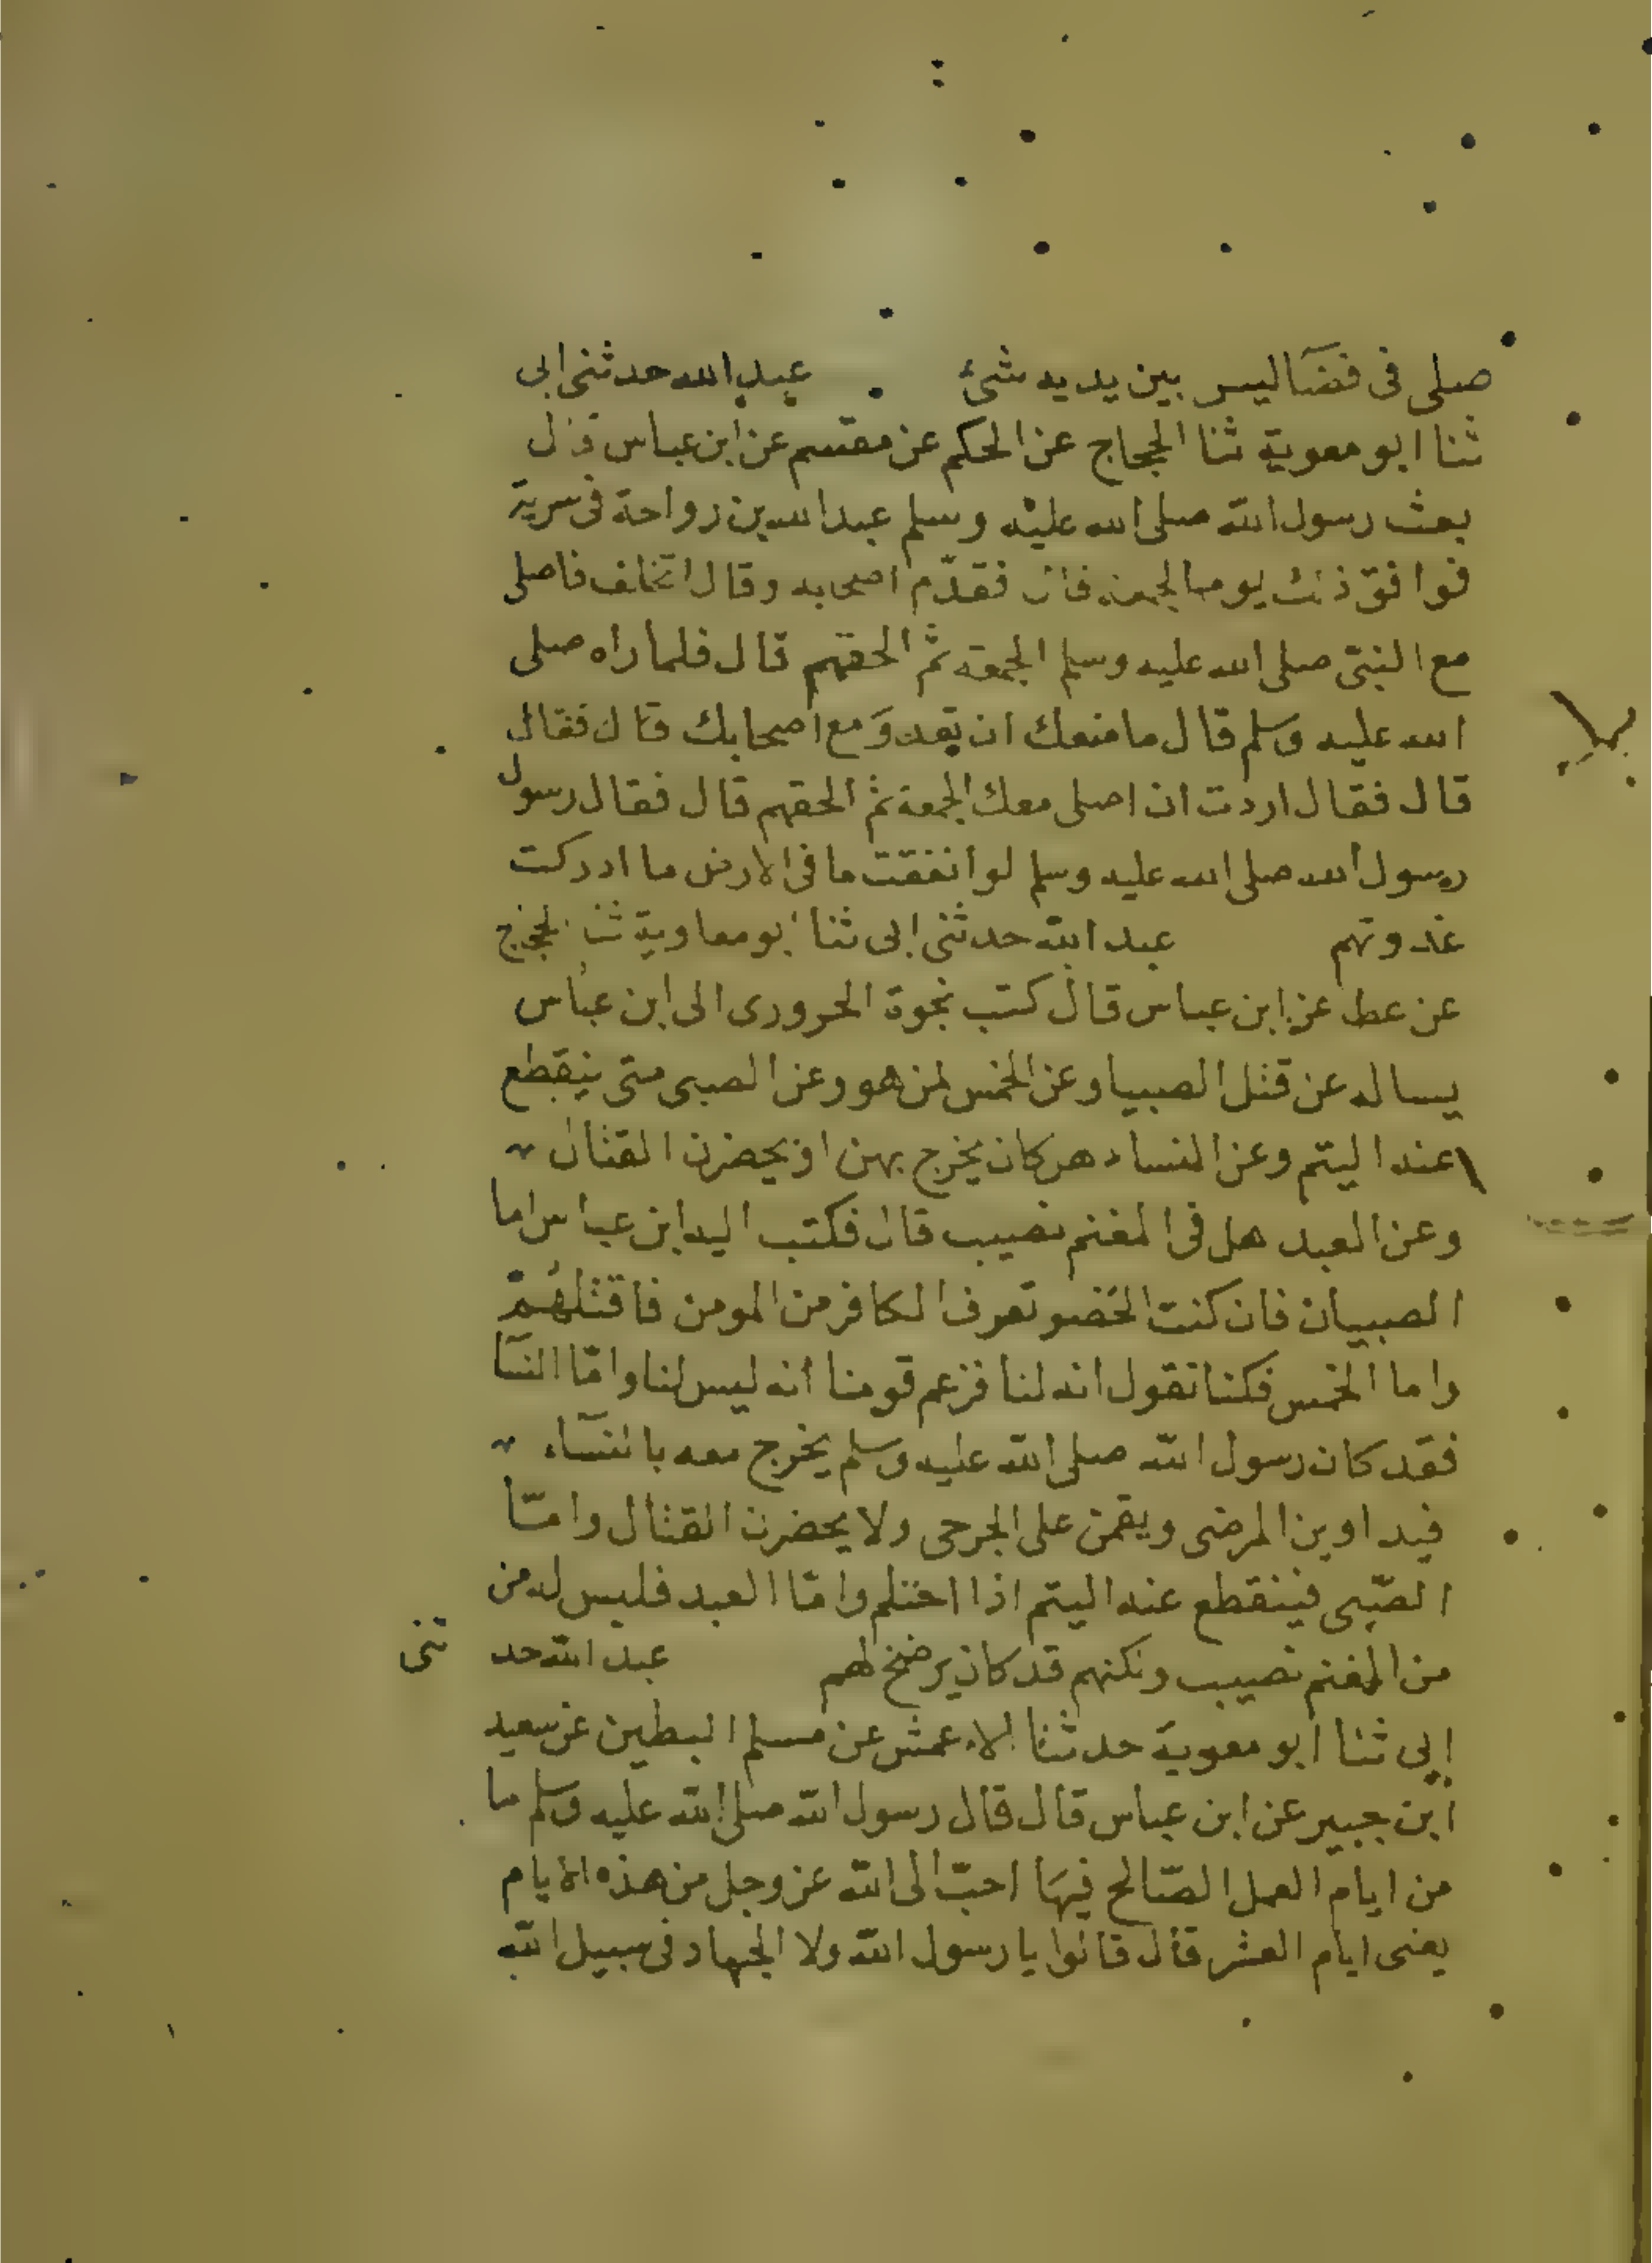 صلى فى فضآ ليس بين يديه شئ عبد الله حدثنى ابى
ثنا ابو معوية ثنا الحجاج عن الحكم عن مقسم عن ابن عباس قال
بعث رسول الله صلى الله عليه وسلم عبد الله بن رواحة فى سرية
فوافق ذلك يوم الجمعة قال فقدّم اصحابه وقال اتخلف فاصلى
مع النبىّ صلى الله عليه وسلم الجمعة ثم الحقهم قال فلما راه صلى
الله عليه وسلم قال ما منعك ان تغدوَ مع اصحابك قال فقال
قال فقال اردت ان اصلى معك الجمعة ثم الحقهم قال فقال رسول
رسول الله صلى الله عليه وسلم لو انفقت ما فى الارض ما ادركت
غدوتهم عبد الله حدثنى ابى ثنا ابو معاوية ثنا الحجاج
عن عطا عن ابن عباس قال كتب نجوة الحرورى الى ابن عباس
يساله عن قتل الصبيا وعن الخمس لمن هو وعن الصبى متى ينقطع
عنه اليتم وعن النساء هل كان يخرج بهن او يحضرن القتال
وعن العبد هل فى المغنم نصيب قال فكتب اليه ابن عباس اما
الصبيان فان كنت الخضو تعرف الكافر من المومن فاقتلهُمْ
واما الخمس فكنا نقول انه لنا فزعم قومنا انه ليس لنا وامّا النسآ
فقد كان رسول الله صلى الله عليه وسلم يخرج معه بالنسآء
فيداوين المرضى ويقمن على الجرحى ولا يحضرن القتال وامّا
الصّبى فينقطع عنه اليتم اذا احتلم وامّا العبد فليس له من
من المغنم نصيب ولكنهم قد كان يرضخ لهم عبد الله حد ثنى
ابى ثنا ابو معوية حدثنا الاعمش عن مسلم البطين عن سعيد
ابن جبير عن ابن عباس قال قال رسول الله صلى الله عليه وسلم ما
من ايام العمل الصّالح فيهَا احبّ الى الله عز وجل من هذه الايام
يعنى ايام العشر قال قالوا يا رسول الله ولا الجهاد فى سبيل الله